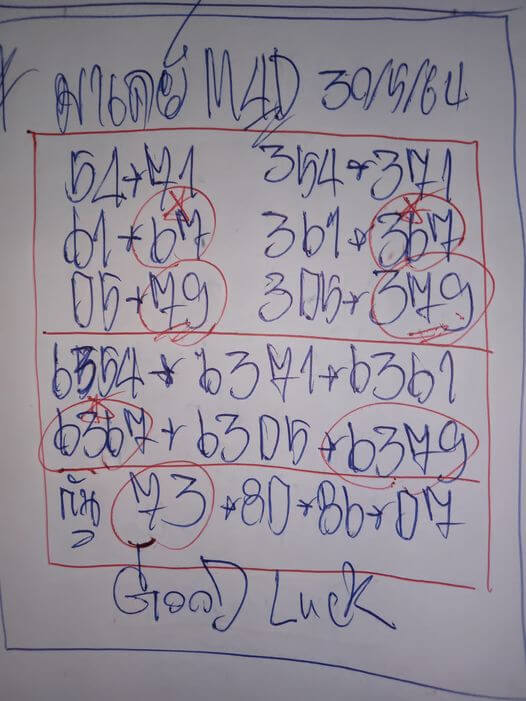 มาเลย์ M4D 30/5/64
54*71 354*371
61*67 361*367
05*79 305*379
6354*6371*6361
6367*6305*6379
กัน 73*80*86*07
Good Luck